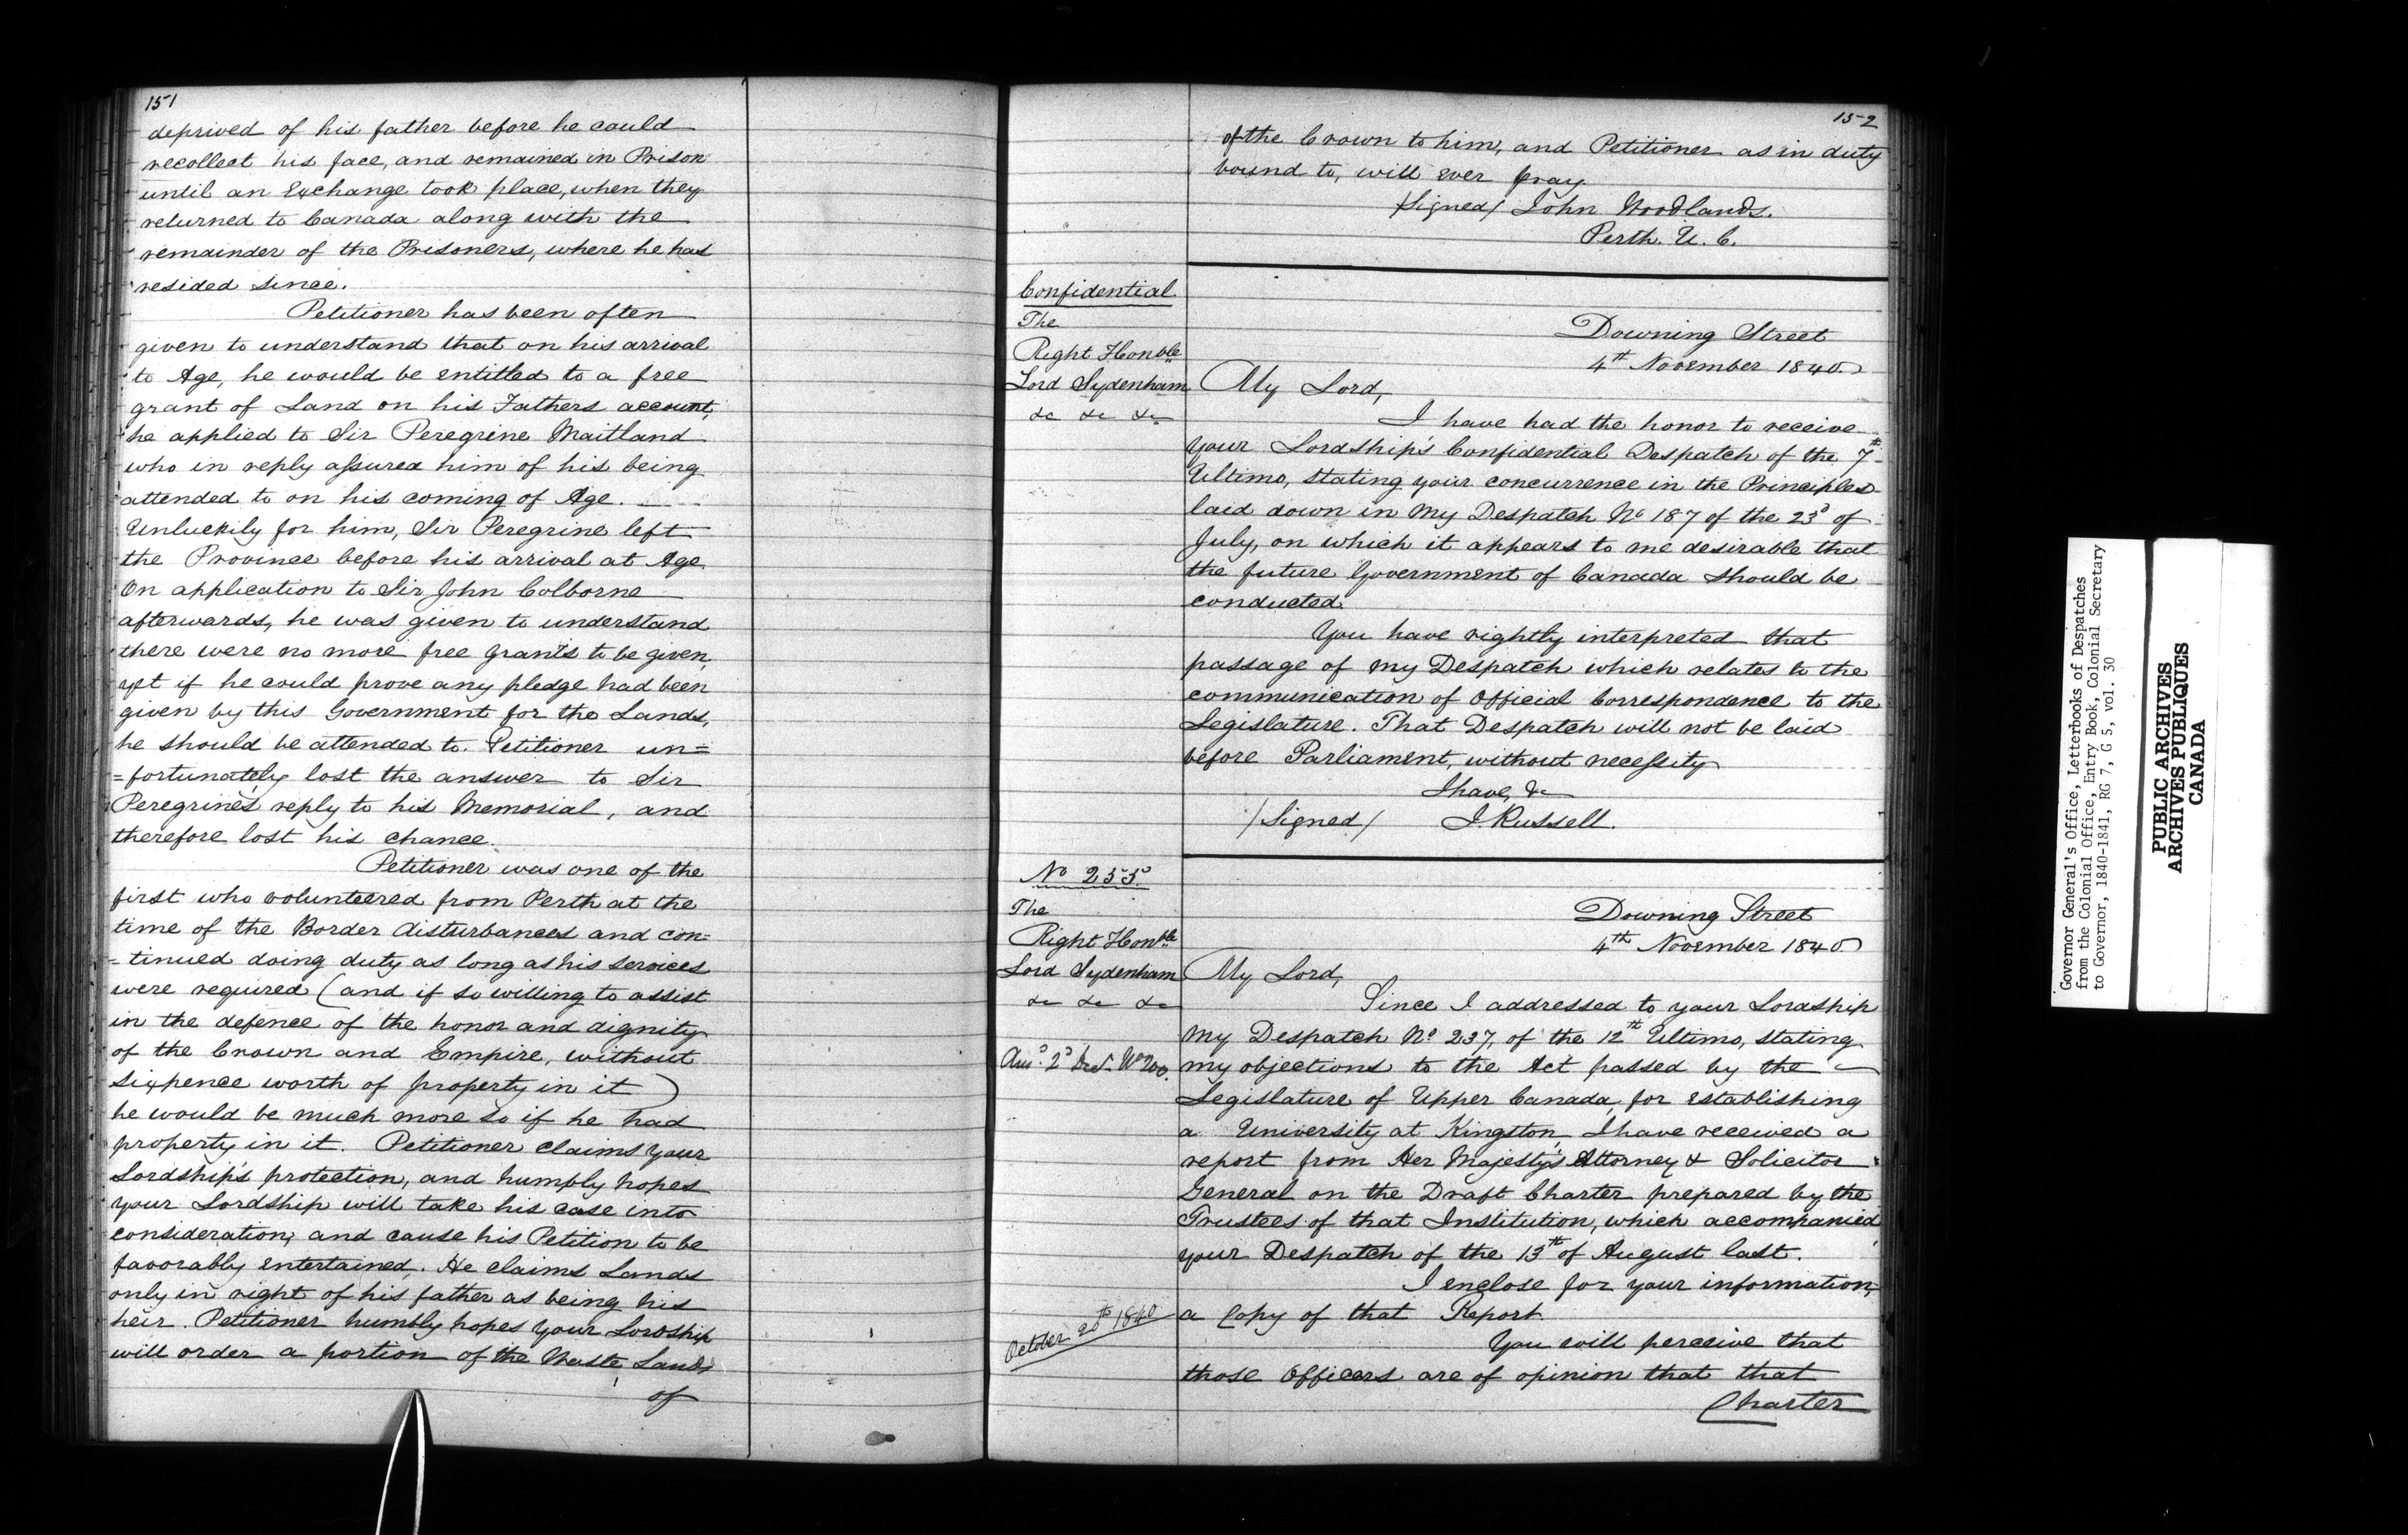 151
deprived of his father before he could
recollect his face, and remained in Prison
until an Exchange took place, when they
returned to Canada along with the
remainder of the Prisoners, where he has
resided since.
Petitioner has been often
given to understand that on his arrival
to Age, he would be entitled to a free
grant of Land on his Fathers account,
he applied to Sir Peregrine Maitland
who in reply assured him of his being
attended to on his coming of Age.
Unluckily for him, Sir Peregrine left
the Province before his arrival at Age.
On application to Sir John Colborne
afterwards, he was given to understand
there were no more free grants to be given,
yet if he could prove any pledge had been
given by this Government for the Lands,
he should be attended to. Petitioner un=
=fortunately lost the answer to Sir
Peregrine's reply to his Memorial, and
therefore lost his chance.
Petitioner was one of the
first who volunteered from Perth at the
time of the Border disturbances and con=
=tinued doing duty as long as his services
were required (and if so willing to assist
in the defence of the honor and dignity
of the Crown and Empire, without
sixpence worth of property in it)
he would be much more so if he had
property in it. Petitioner claims your
Lordship's protection, and humbly hopes
your Lordship will take his case into
consideration, and cause his Petition to be
favorably entertained. He claims Lands
only in right of his father as being his
heir. Petitioner humbly hopes your Lordship
will order a portion of the Waste Lands
of
152
of the Crown to him, and Petitioner as in duty
bound to, will ever pray.
/Signed/ John Woodlands.
Perth. U. C.
Confidential
The
Right Honble
Lord Sydenham
&c &c &c
Downing Street
4th November 1840
My Lord,
I have had the honor to receive
your Lordship's Confidential Despatch of the 7th
Ultimo, stating your concurrence in the Principles
laid down in my Despatch No 187 of the 23d of
July, on which it appears to me desirable that
the future Government of Canada should be
conducted.
You have rightly interpreted that
passage of my Despatch which relates to the
communication of Official Correspondence to the
Legislature. That Despatch will not be laid
before Parliament, without necessity
I have, &c
/Signed/ J. Russell.
No 255
The
Right Honble
Lord Sydenham
&c &c &c
Downing Street
4th November 1840
My Lord,
Since I addressed to your Lordship
my Despatch No 237, of the 12th Ultimo, stating
Ansd 2d Decr No 200.
my objections to the Act passed by the
Legislature of Upper Canada, for establishing
a University at Kingston, I have received a
report from Her Majesty's Attorney & Solicitor
General on the Draft Charter prepared by the
Trustees of that Institution, which accompanied
your Despatch of the 13th of August last.
I enclose for your information,
October 20th 1840
a Copy of that Report.
You will perceive that
those Officers are of opinion that that
Charter
Governor General's Office, Letterbooks of Despatches
from the Colonial Office, Entry Book, Colonial Secretary
to Governor, 1840-1841, RG 7, G 5, vol. 30
PUBLIC ARCHIVES
ARCHIVES PUBLIQUES
CANADA